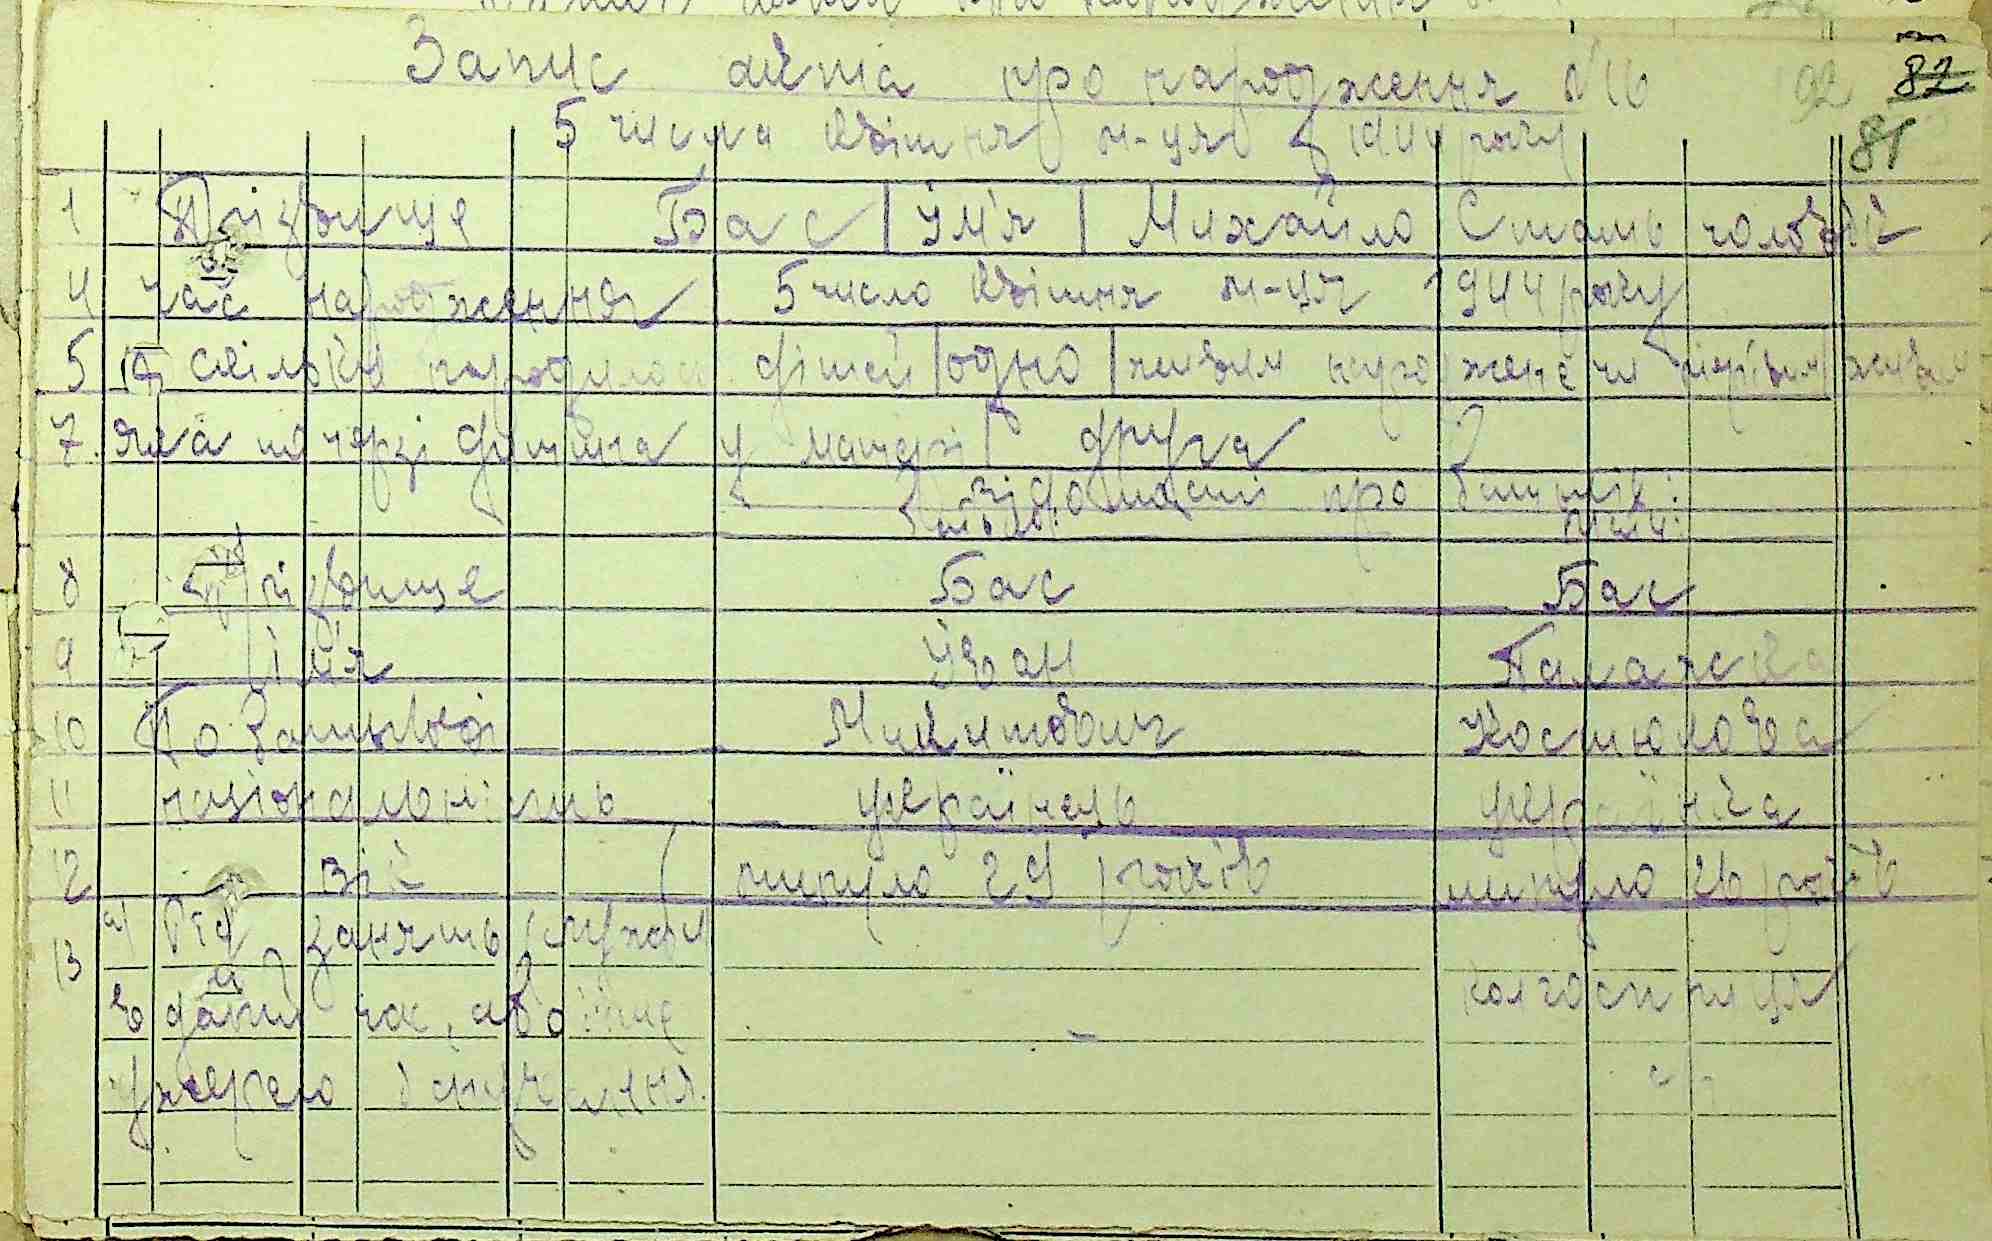 Запис акта про народження №16 92 82
5 числа квітня м-ця 1944 року 81
1 Прізвище Бас | Їм'я | Михайло Стать чоловічій
4 час народження 5 число квітня м-ця 1944 року
5 скільки народилось дітей | одно | живим народжене чи мертвим живим
7 яка по черзі дитина у матері друга
Відомості про батьків:
батько: мати:
8 Прізвище Бас Бас
9 імя Іван Палажка
10 По батькові Микитович Костюкова
11 національність українець українка
12 вік минуло 29 років минуло 26 років
13 а) Рід занять, служби колгоспниця
в даний час, або інше –
джерело існування.